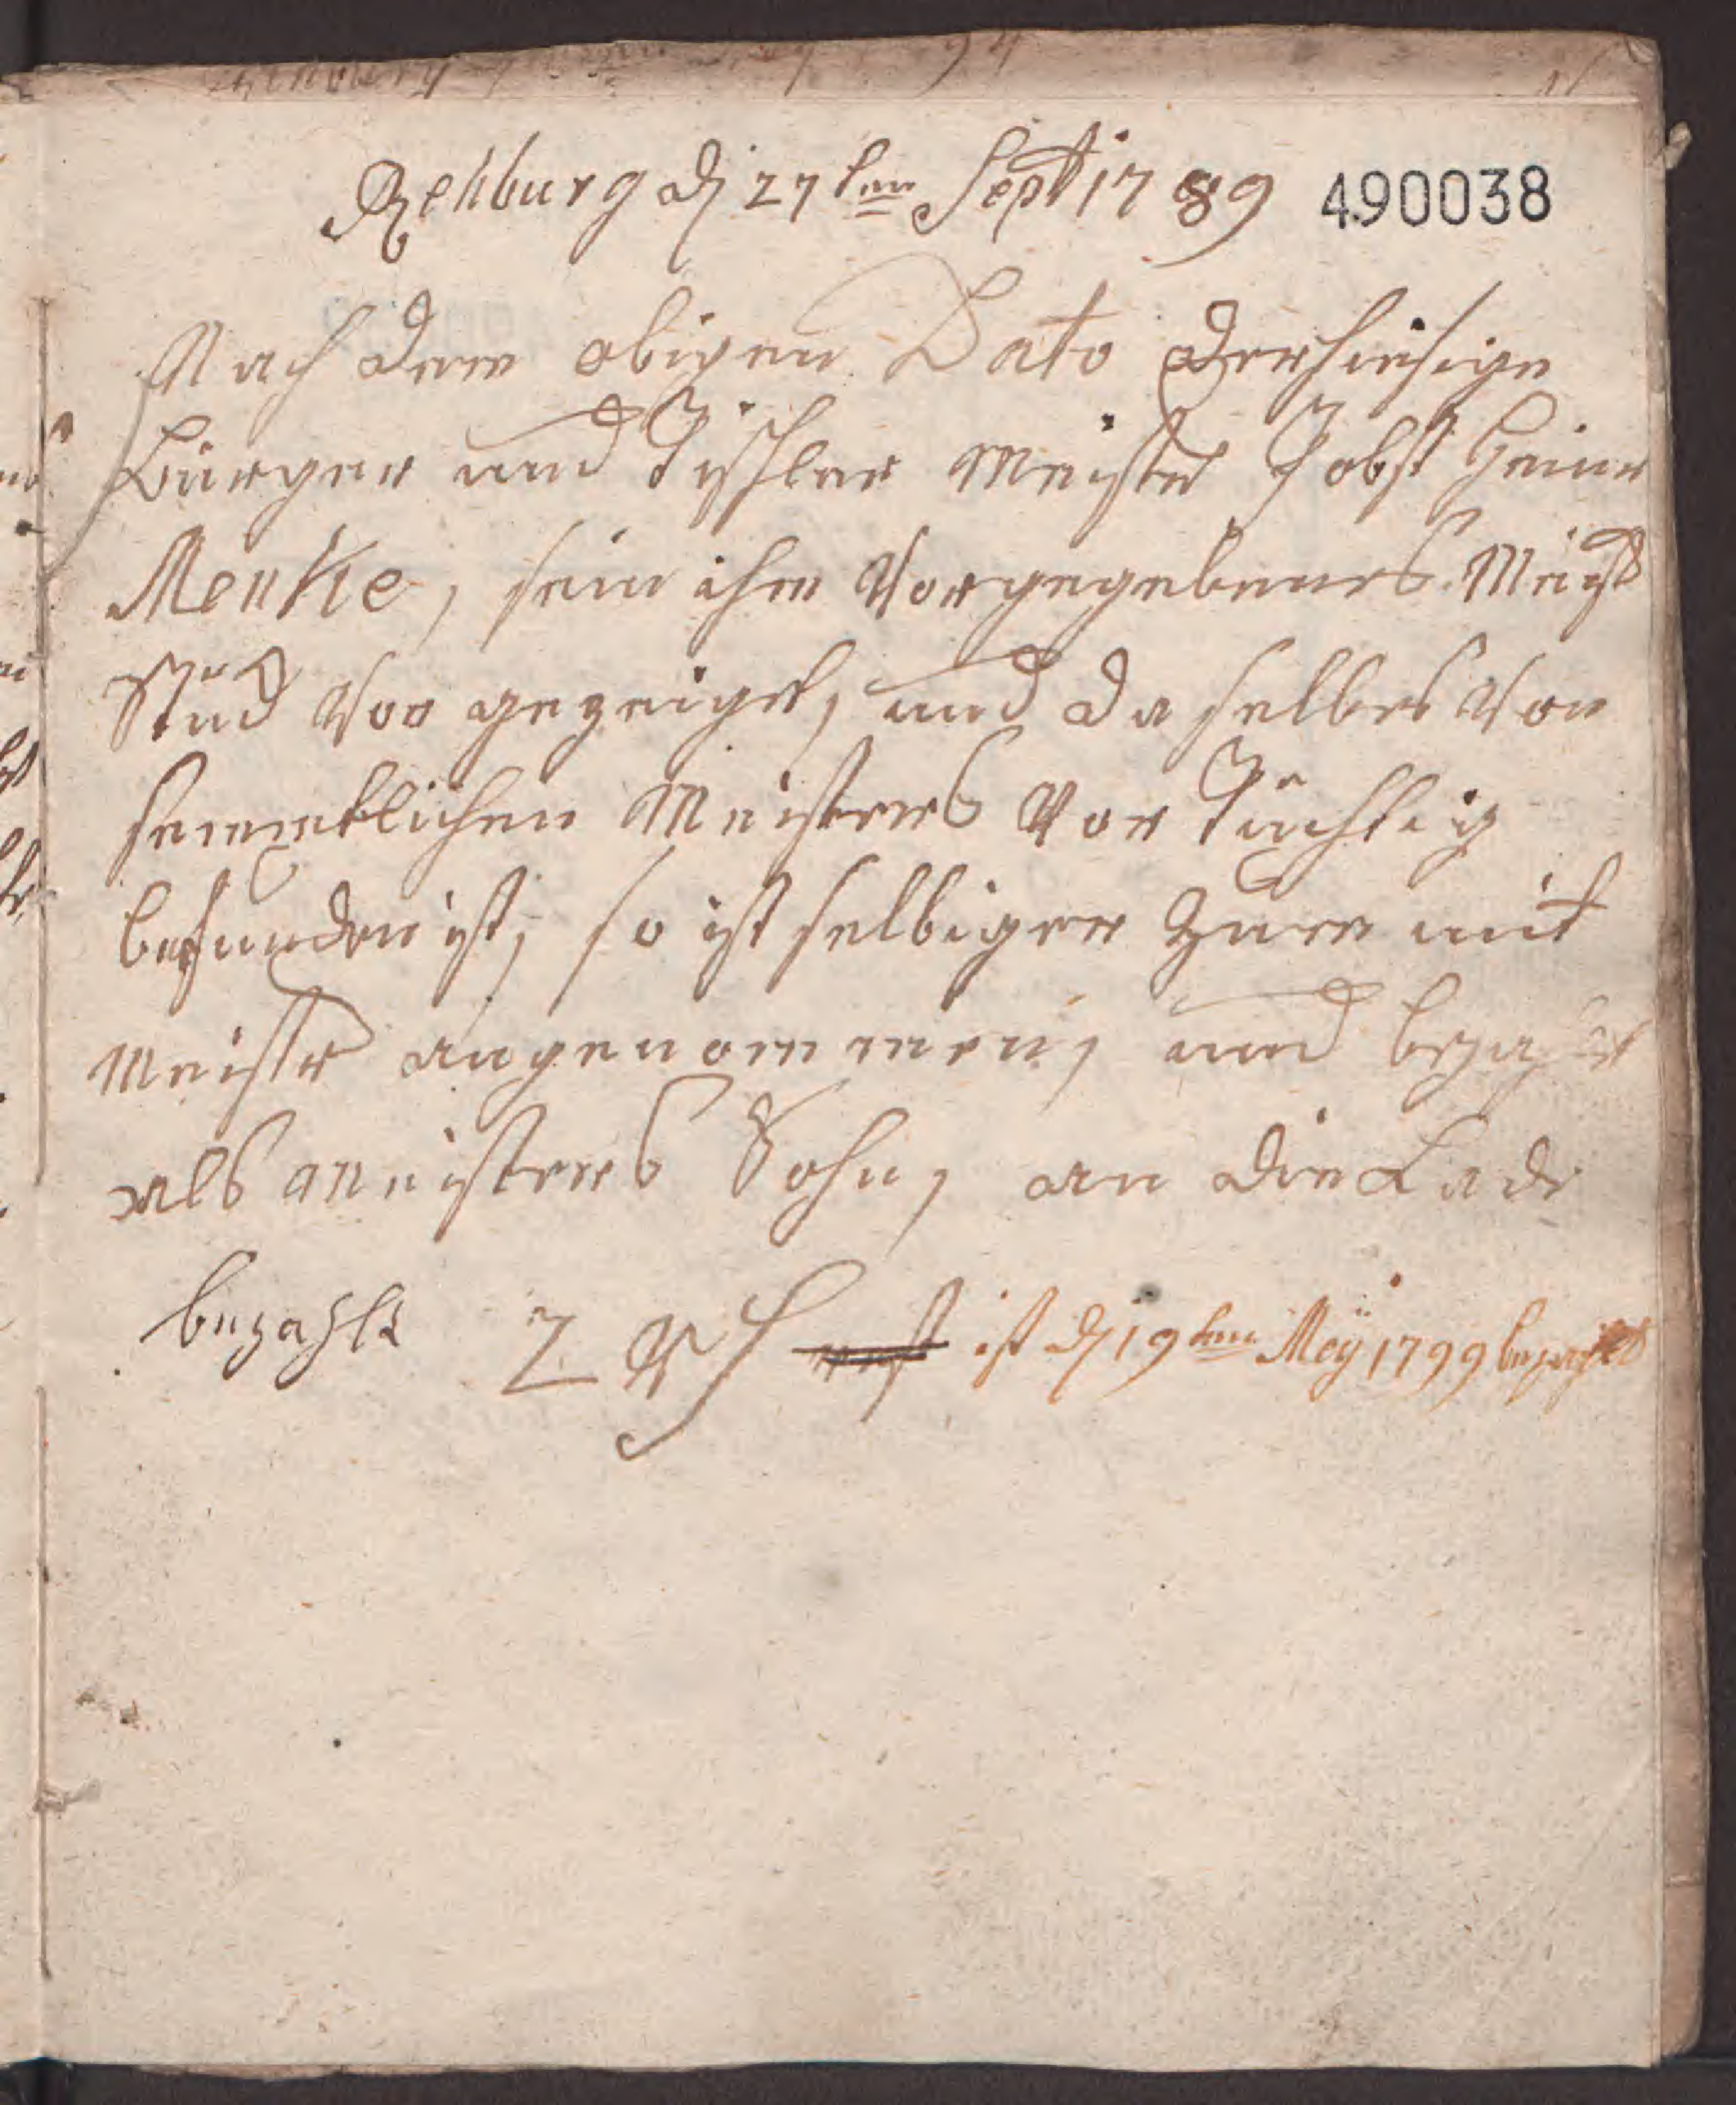 Rehburg d 27ten Sept 1789 490038
Nach dem obigen Dato der hiesige
Bürger und Tischler Meister Jobst Heinr
Menke, sein ihm Vorgegebenes Meist
Stück Vor gezeiget, und da selbes Von
semmtlichen Meisters Vor Tüchtig
befunden ist, so ist selbiger Zum mit
Meister angenommen, und bezahlt
als Meisters Sohn, an die Lade
bezahlt 2 Rh ist d 19ten Mey 1799 bezahlet